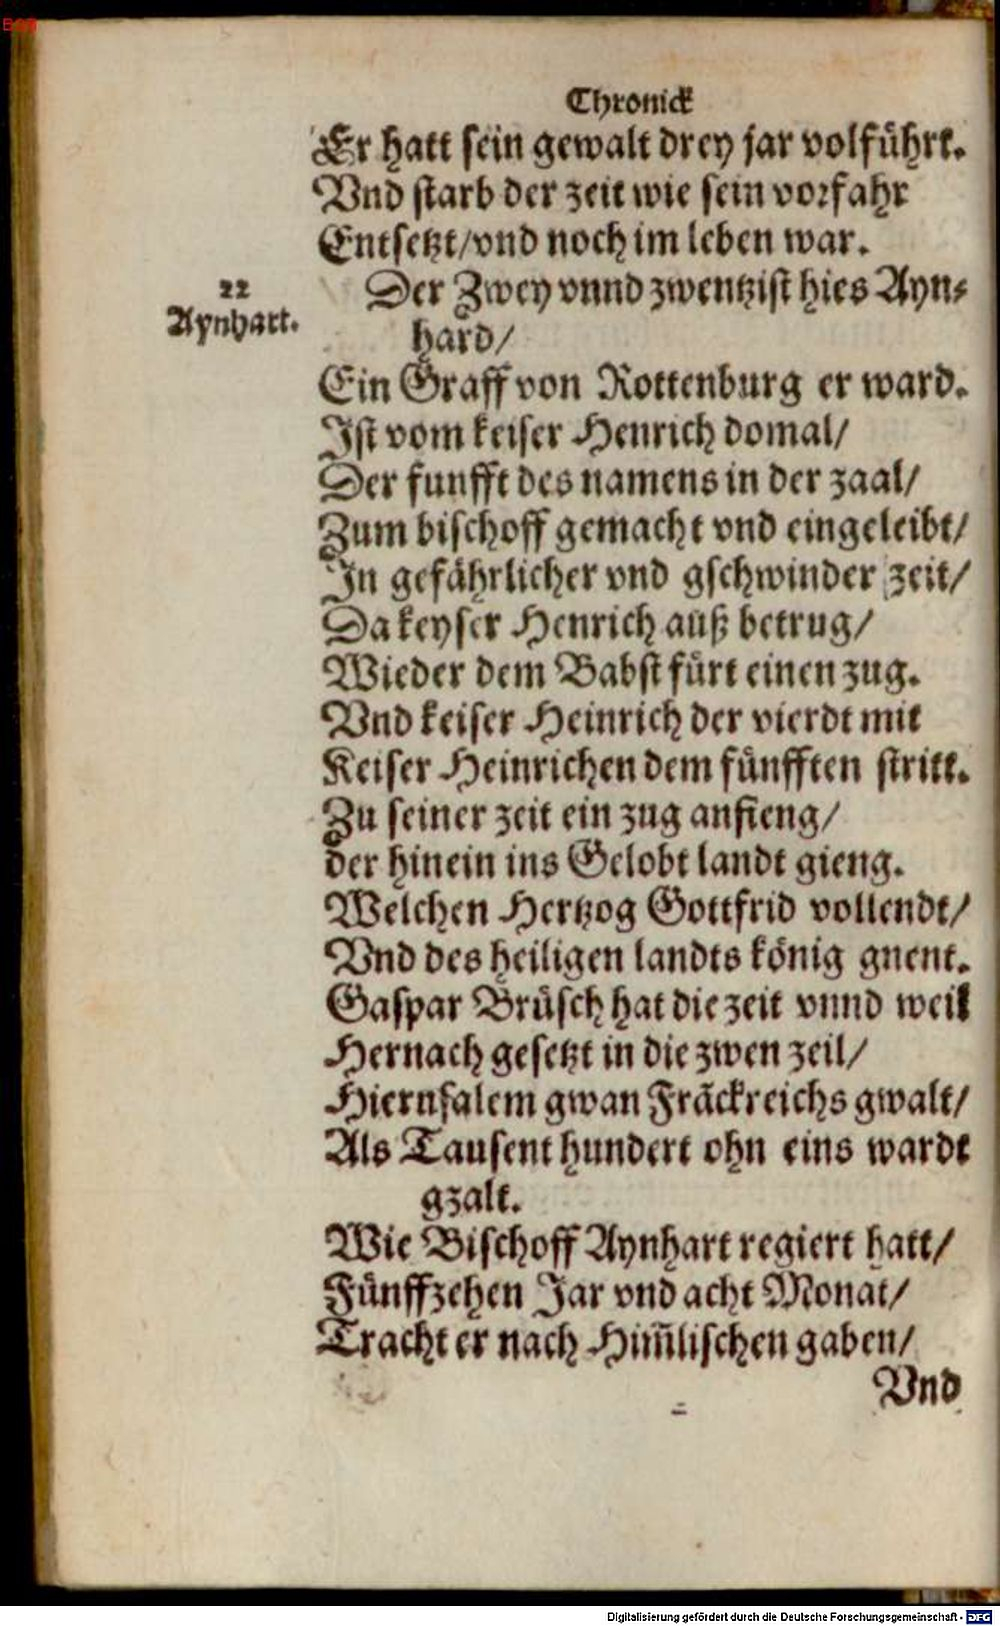 Chronick
Er hatt sein gewalt drey jar volführt.
Vnd starb der zeit wie sein vorfahr
Entsetzt/vnd noch im leben war.
22
Aynhart.
Der Zwey vnnd zwentzist hies Ayn⸗
hard/
Ein Graff von Rottenburg er ward.
Ist vom keiser Henrich domal/
Der funfft des namens in der zaal/
Zum bischoff gemacht vnd eingeleibt/
In gefährlicher vnd gschwinder zeit/
Da keyser Henrich auß betrug/
Wieder dem Babst fürt einen zug.
Vnd keiser Heinrich der vierdt mit
Keiser Heinrichen dem fünfften stritt.
Zu seiner zeit ein zug anfieng/
der hinein ins Gelobt landt gieng.
Welchen Hertzog Gottfrid vollendt/
Vnd des heiligen landts könig gnent.
Gaspar Brüsch hat die zeit vnnd weil
Hernach gesetzt in die zwen zeil/
Hierusalem gwan Fräckreichs gwalt/
Als Tausent hundert ohn eins wardt
gzalt.
Wie Bischoff Aynhart regiert hatt/
Fünffzehen Jar vnd acht Monat/
Tracht er nach Him̃lischen gaben/
Vnd
Digitalisierung gefördert durch die Deutsche Forschungsgemeinschaft - DFG